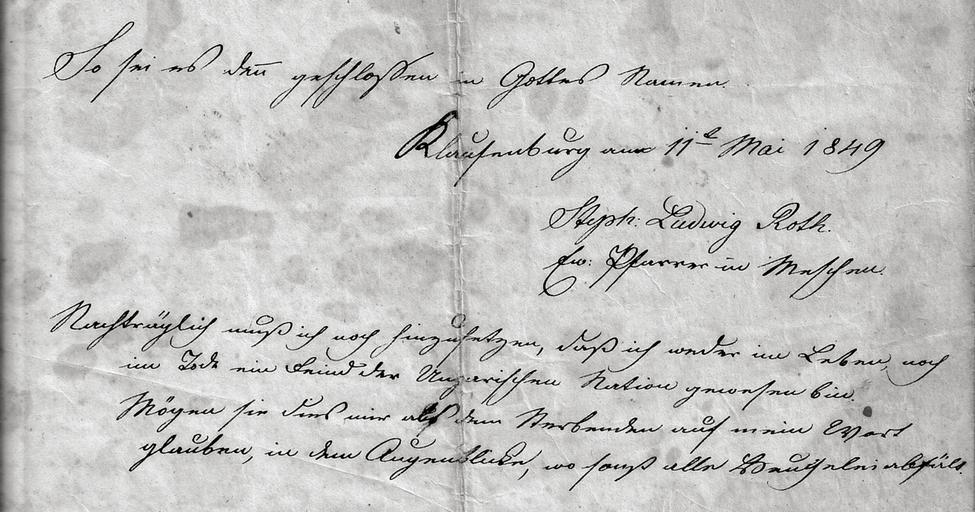 So sei es denn geschlossen in Gottes Namen.
Klausenburg am 11t Mai 1849
Steph: Ludwig Roth.
Ew: Pfarrer in Meschen.
Nachträglich muß ich noch hinzusetzen, daß ich weder im Leben, noch
im Tode ein Feind der Ungarischen Nation gewesen bin.
Mögen sie dies mir als dem Sterbenden auf mein Wort
glauben, in dem Augenblicke, wo sonst alle Heuchelei abfällt.